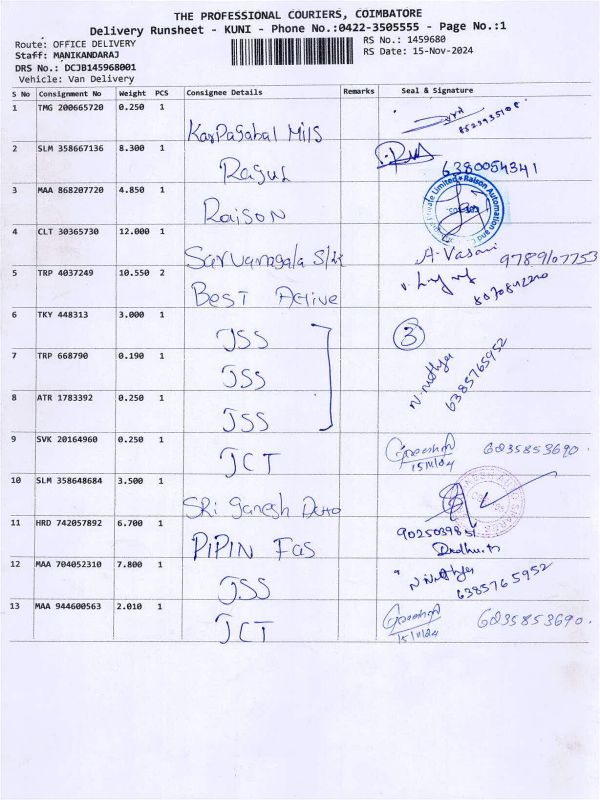 THE PROFESSIONAL COURIERS, COIMBATORE
Delivery Runsheet - KUNI - Phone No.:0422-3505555 - Page No.:1
Route: OFFICE DELIVERY
RS No.: 1459680
Staff: MANIKANDARAJ
RS Date: 15-Nov-2024
DRS No.: DCJB145968001
Vehicle: Van Delivery
S No Consignment No Weight PCS Consignee Details Remarks Seal & Signature
1 TMG 200665720 0.250 1
Karpagabal Mills
2 SLM 358667136 8.300 1
Ragul 6380054341
3 MAA 868207720 4.850 1
Raison
4 CLT 30365730 12.000 1
A. Vasani 9789107753
5 TRP 4037249 10.550 2
Best Active
6 TKY 448313 3.000 1
JSS 3
7 TRP 668790 0.190 1
JSS N. Nithya 6385765952
8 ATR 1783392 0.250 1
JSS
9 SVK 20164960 0.250 1
JCT 15/11/24 6235853690.
10 SLM 358648684 3.500 1
SRi Ganesh Auto
11 HRD 742057892 6.700 1
PIPIN Fas
12 MAA 704052310 7.800 1
JSS N. Nithya 6385765952
13 MAA 944600563 2.010 1
JCT 15/11/24 6235853690.